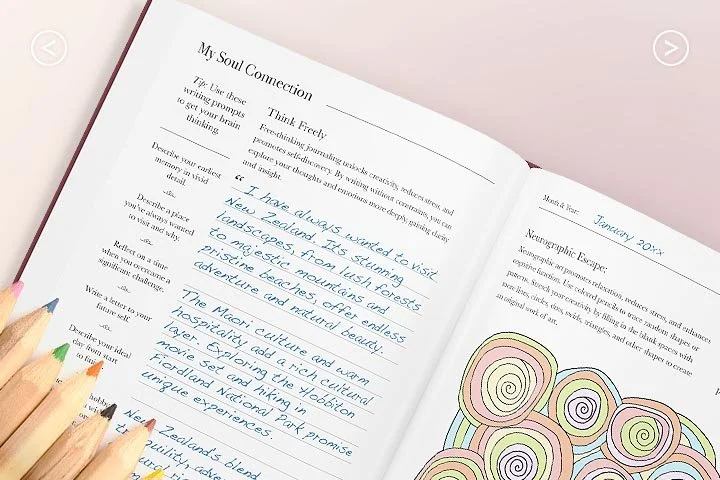 My Soul Connection
Tip: Use these
writing prompts
to get your brain
thinking.
Describe your earliest
memory in vivid
detail.
Describe a place
you've always wanted
to visit and why.
Reflect on a time
when you overcame a
significant challenge.
Write a letter to your
future self.
Describe your ideal
day from start
to
Think Freely
Free-thinking journaling unlocks creativity, reduces stress, and
promotes self-discovery. By writing without constraints, you can
explore your thoughts and emotions more deeply, gaining clarity
and insight.
“
I have always wanted to visit
New Zealand. Its stunning
landscapes, from lush forests
to majestic mountains and
pristine beaches, offer endless
adventure and natural beauty.
The Maori culture and warm
hospitality add a rich cultural
layer. Exploring the Hobbiton
movie set and hiking in
Fiordland National Park promise
unique experiences.
New Zealand's blend
Month & Year:
January 20XX
Neurographic Escape:
Neurographic art promotes relaxation, reduces stress, and enhances
cognitive function. Use colored pencils to trace random shapes or
patterns. Stretch your creativity by filling in the blank spaces with
more lines, circles, dots, swirls, triangles, and other shapes to create
an original work of art.